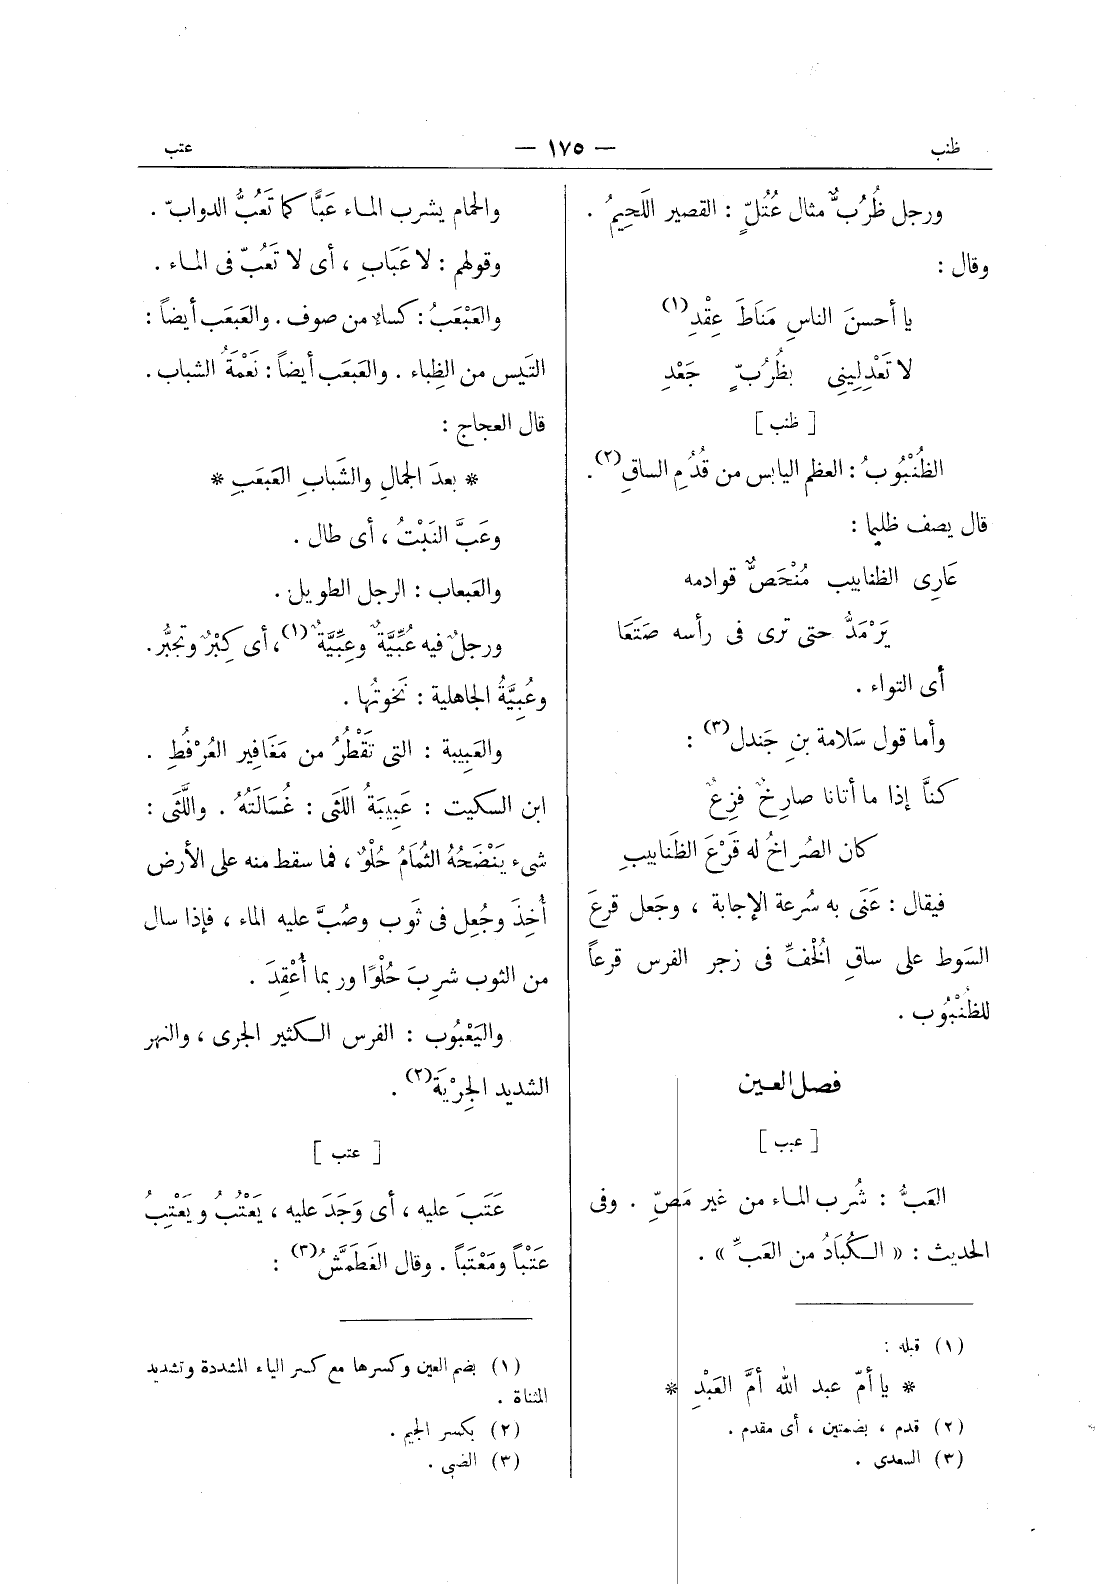 ظنب
— ١٧٥ —
عتب
ورجل ظُرُبٌّ مثال عُتُلٍّ : القصير اللَحِيمُ .
وقال :
يا أحسنَ الناسِ مَنَاطَ عِقْدِ (١)
لا تَعْدِلِينِى بظُرُبٍّ جَعْدِ
[ ظنب ]
الظُنْبُوبُ : العظم اليابس من قُدُمِ الساقِ (٢) .
قال يصف ظليما :
عَارِى الظنابيب مُنْحَصٌّ قوادمه
يَرْمَدُّ حتى ترى فى رأسه صَتَعَا
أى التواء .
وأما قول سَلامة بنِ جَندل (٣) :
كنَّا إذا ما أتانا صارِخٌ فزِعٌ
كان الصُراخُ له قَرْعَ الظَنابيبِ
فيقال : عَنَى به سُرعة الإجابة ، وجَعل قرعَ
السَوط على ساقِ الخُفِّ فى زجر الفرس قرعاً
للظُنْبُوب .
فصل العين
[ عبب ]
العَبُّ : شُرب الماء من غير مَصّ . وفى
الحديث : « الكُبَادُ من العَبِّ » .
(١) قبله :
* يا أمّ عبد الله أمَّ العَبْدِ *
(٢) قدم ، بضمتين ، أى مقدم .
(٣) السعدى .
والحمام يشرب الماء عَبًّا كما تَعُبُّ الدوابّ .
وقولهم : لا عَبَابِ ، أى لا تَعُبّ فى الماء .
والعَبْعَبُ : كساء من صوف . والعَبعَب أيضاً :
التَيس من الظِباء . والعَبعَب أيضاً : نَعْمَةُ الشباب .
قال العجاج :
* بعدَ الجمالِ والشَبابِ العَبعَبِ *
وعَبَّ النَبْتُ ، أى طال .
والعَبعاب : الرجل الطويل .
ورجلٌ فيه عُبِّيَّةٌ وعِبِّيَّةٌ (١) ، أى كِبْرٌ وتجبُّر .
وعُبِيَّةُ الجاهلية : نَخوتُها .
والعَبِيبة : التى تَقْطُرُ من مَغَافِير العُرْفُطِ .
ابن السكيت : عَبِيبَةُ اللَثَى : غُسَالَتُهُ . واللَّثَى :
شىء يَنْضَحُهُ الثُمَامُ حُلْوٌ ، فما سقط منه على الأرض
أُخِذَ وجُعِل فى ثَوب وصُبَّ عليه الماء ، فإذا سال
من الثوب شرِبَ حُلْوًا وربما أُعْقِدَ .
واليَعْبُوب : الفرس الكثير الجرى ، والنهر
الشديد الجِرْيَةَ (٢) .
[ عتب ]
عَتَبَ عليه ، أى وَجَدَ عليه ، يَعْتُبُ ويَعْتِبُ
عَتْباً ومَعْتَباً . وقال الغَطَمَّشُ (٣) :
(١) بضم العين وكسرها مع كسر الباء المشددة وتشديد
المثناة .
(٢) بكسر الجيم .
(٣) الضبى .